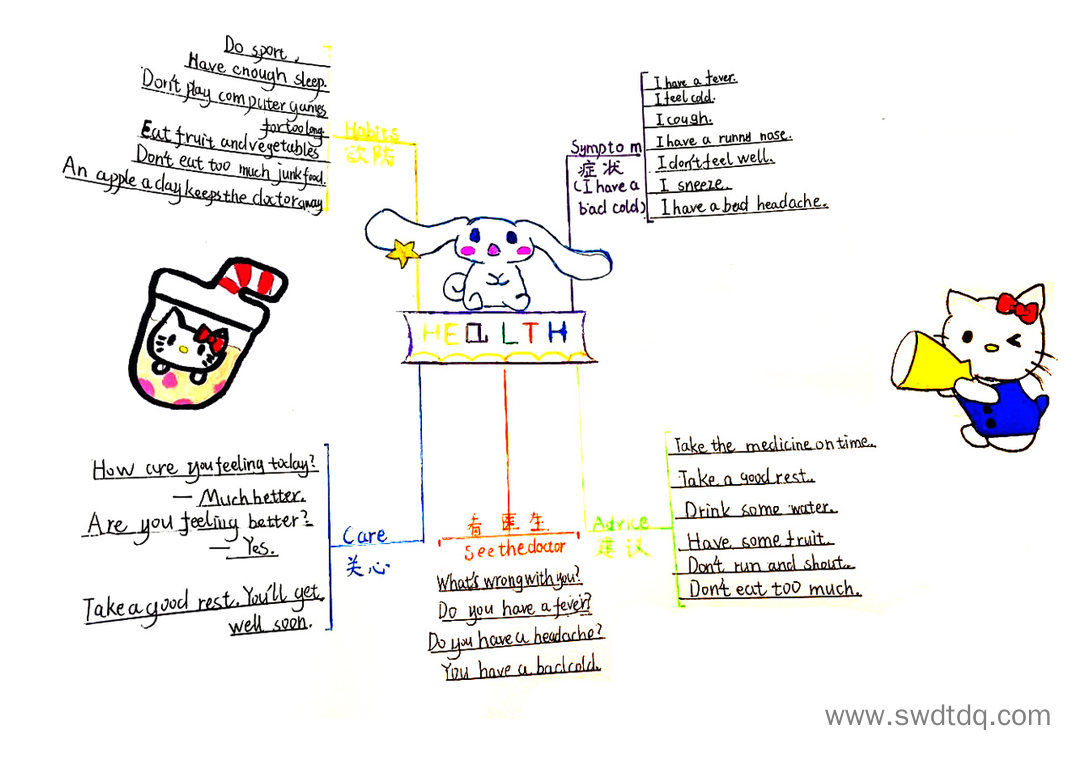 Do sport,
Have enough sleep.
Don't play computer games
for too long
Eat fruit and vegetables
Don't eat too much junk food.
An apple a day keeps the doctor away
Habits
Symptom
症状
(I have a
bad cold)
I have a fever.
I feel cold.
I cough.
I have a runny nose.
I don't feel well.
I sneeze.
I have a bad headache.
HEALTH
How are you feeling today?
— Much better.
Are you feeling better?
— Yes.
Take a good rest. You'll get
well soon.
Care
关心
看医生
See the doctor
What's wrong with you?
Do you have a fever?
Do you have a headache?
You have a bad cold.
Advice
建议
Take the medicine on time.
Take a good rest.
Drink some water.
Have some fruit.
Don't run and shout.
Don't eat too much.
www.swdtdq.com